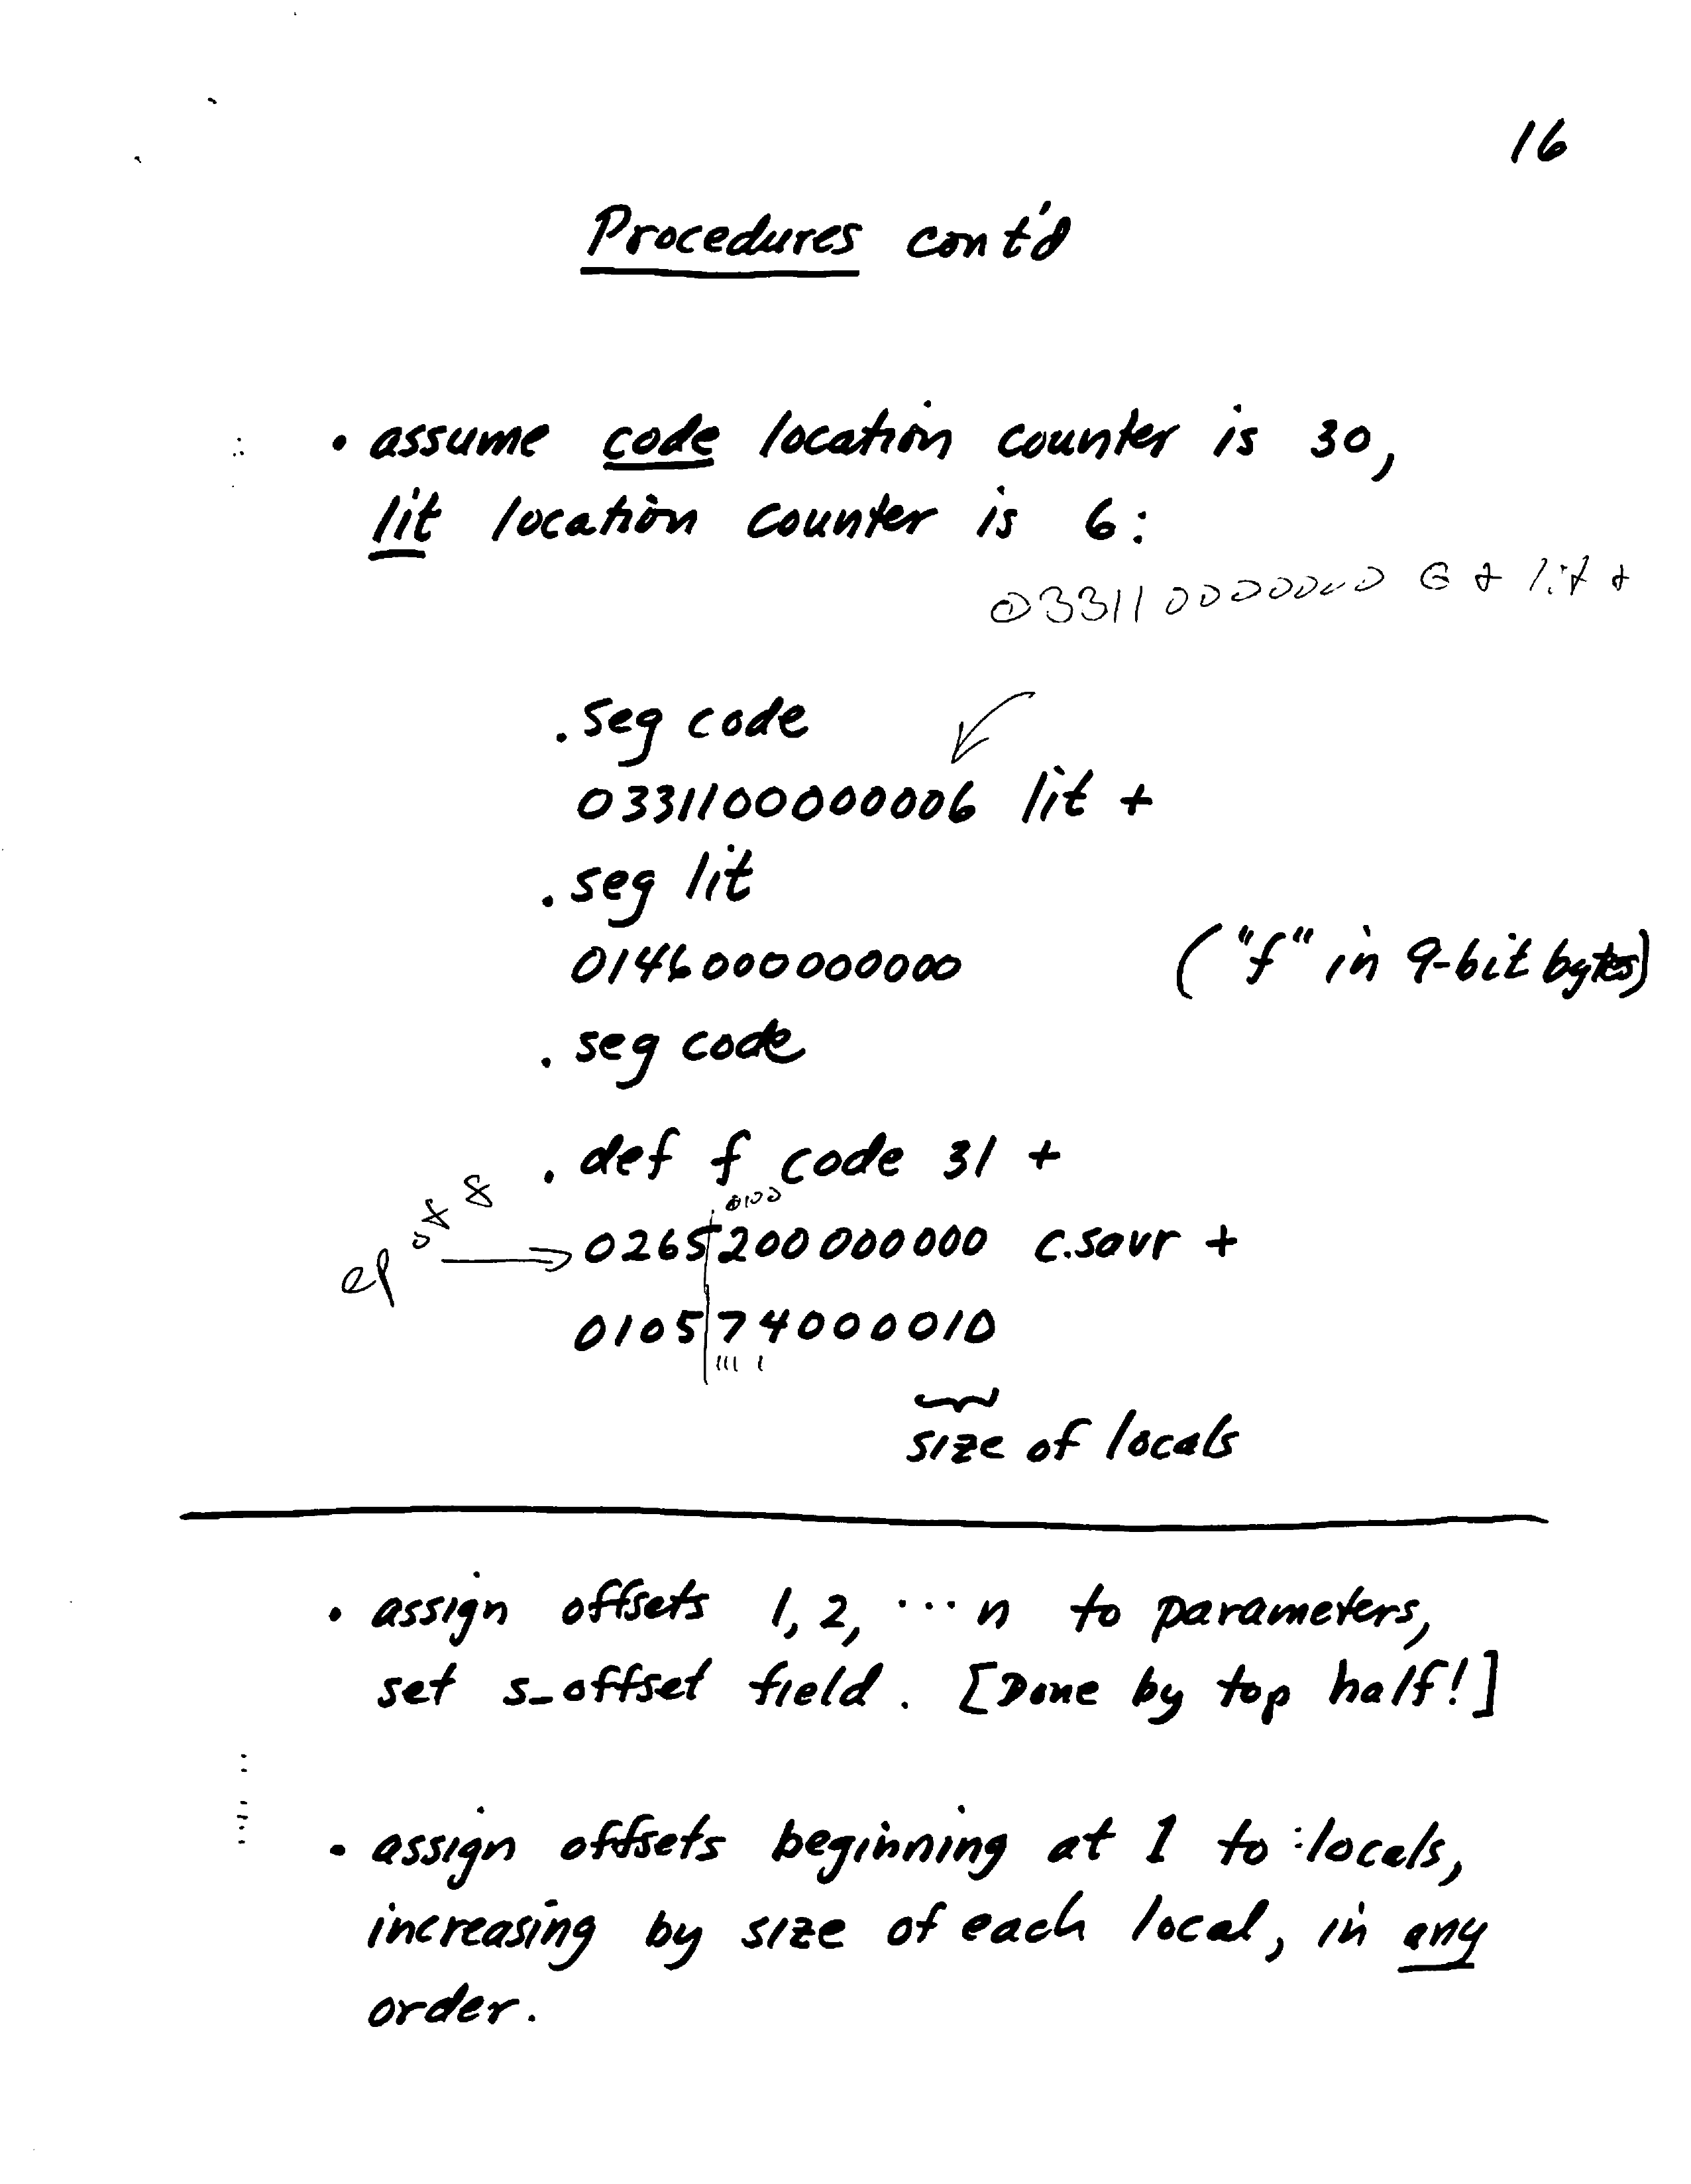 16
Procedures cont'd
• assume code location counter is 30,
lit location counter is 6:
033110000000 6 + lit +
.seg code
0331100000006 lit +
.seg lit
0146000000000 ("f" in 9-bit bytes)
.seg code
.def f code 31 +
0100
ep of 8 → 0265200000000 c.savr +
0105740000010
1111 1
size of locals
• assign offsets 1, 2, ... n to parameters,
set s_offset field. [Done by top half!]
• assign offsets beginning at 1 to locals,
increasing by size of each local, in any
order.